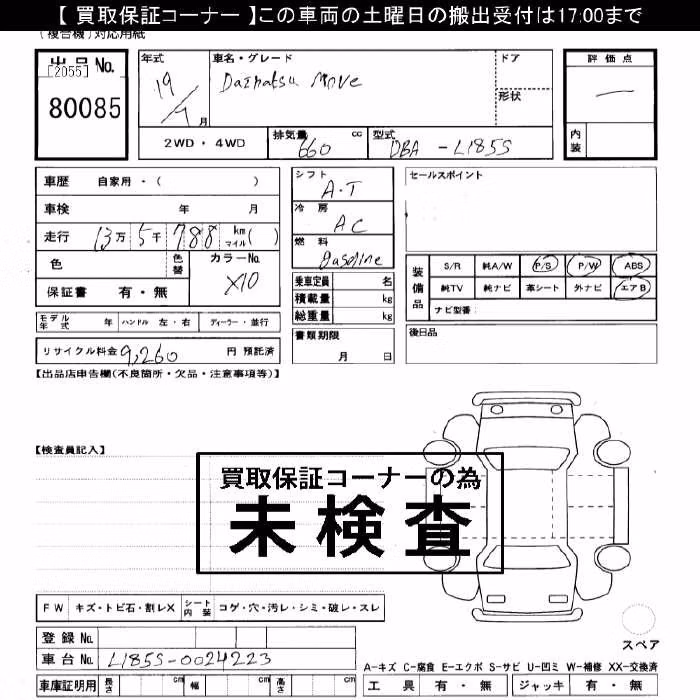 【 買取保証コーナー 】この車両の土曜日の搬出受付は17:00まで
(複合機)対応用紙
出品No.
[2055]
80085
年式
19/9月
車名・グレード
Daihatsu Move
ドア
形状
評価点
内装
2WD・4WD
排気量 660 cc
型式 DBA -L185S
車歴 自家用・( )
車検 年 月
走行 13万 5千 788 km マイル( )
色
色替
カラーNo. X10
保証書 有・無
シフト A.T
冷房 AC
燃料 gasoline
乗車定員 名
積載量 kg
総重量 kg
セールスポイント
装備品
S/R 純A/W P/S P/W ABS
純TV 純ナビ 革シート 外ナビ エアB
ナビ型番:
モデル年式 年 ハンドル 左・右 ディーラー・並行
リサイクル料金 9,260 円 預託済
書類期限
月 日
後日品
【出品店申告欄(不良箇所・欠品・注意事項等)】
【検査員記入】
買取保証コーナーの為
未検査
FW キズ・トビ石・割レX シート内装 コゲ・穴・汚レ・シミ・破レ・スレ
登録No.
車台No. L185S-0024223
車庫証明用 長さ cm 幅 cm 高さ cm
スペア
A-キズ C-腐食 E-エクボ S-サビ U-凹ミ W-補修 XX-交換済
工具 有・無 ジャッキ 有・無